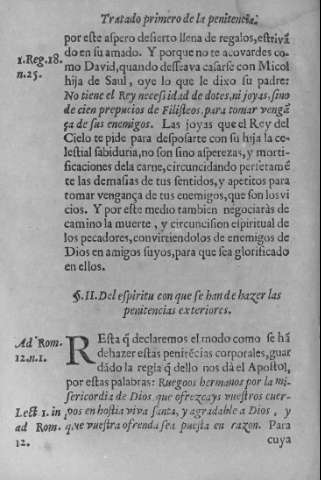 Tratado primero de la penitencia.
por este aspero desierto llena de regalos, estriuã
1. Reg. 18. n. 25.
do en su amado. Y porque no te acovardes co-
mo David, quando desseava casarse con Micol
hija de Saul, oye lo que le dixo su padre:
No tiene el Rey necesidad de dotes, ni joyas, sino
de cien prepucios de Filisteos, para tomar vengã
ça de sus enemigos. Las joyas que el Rey del
Cielo te pide para desposarte con su hija la ce-
lestial sabiduria, no son sino asperezas, y morti-
ficaciones de la carne, circuncidando perfetamẽ
te las demasias de tus sentidos, y apetitos para
tomar vengança de tus enemigos, que son los vi
cios. Y por este medio tambien negociaràs de
camino la muerte, y circuncision espiritual de
los pecadores, convirtiendolos de enemigos de
Dios en amigos suyos, para que sea glorificado
en ellos.
§. II. Del espiritu con que se han de hazer las
penitencias exteriores.
Ad Rom. 12. n. 1.
REsta q̃ declaremos el modo como se hã
de hazer estas penitẽcias corporales, guar
dãdo la regla q̃ dello nos dà el Apostol,
por estas palabras: Ruegoos hermanos por la mi-
sericordia de Dios que ofrezcays vuestros cuer-
Lect. 1. in ad Rom. 12.
pos en hostia viva santa, y agradable a Dios, y
que vuestra ofrenda sea puesta en razon. Para
cuya